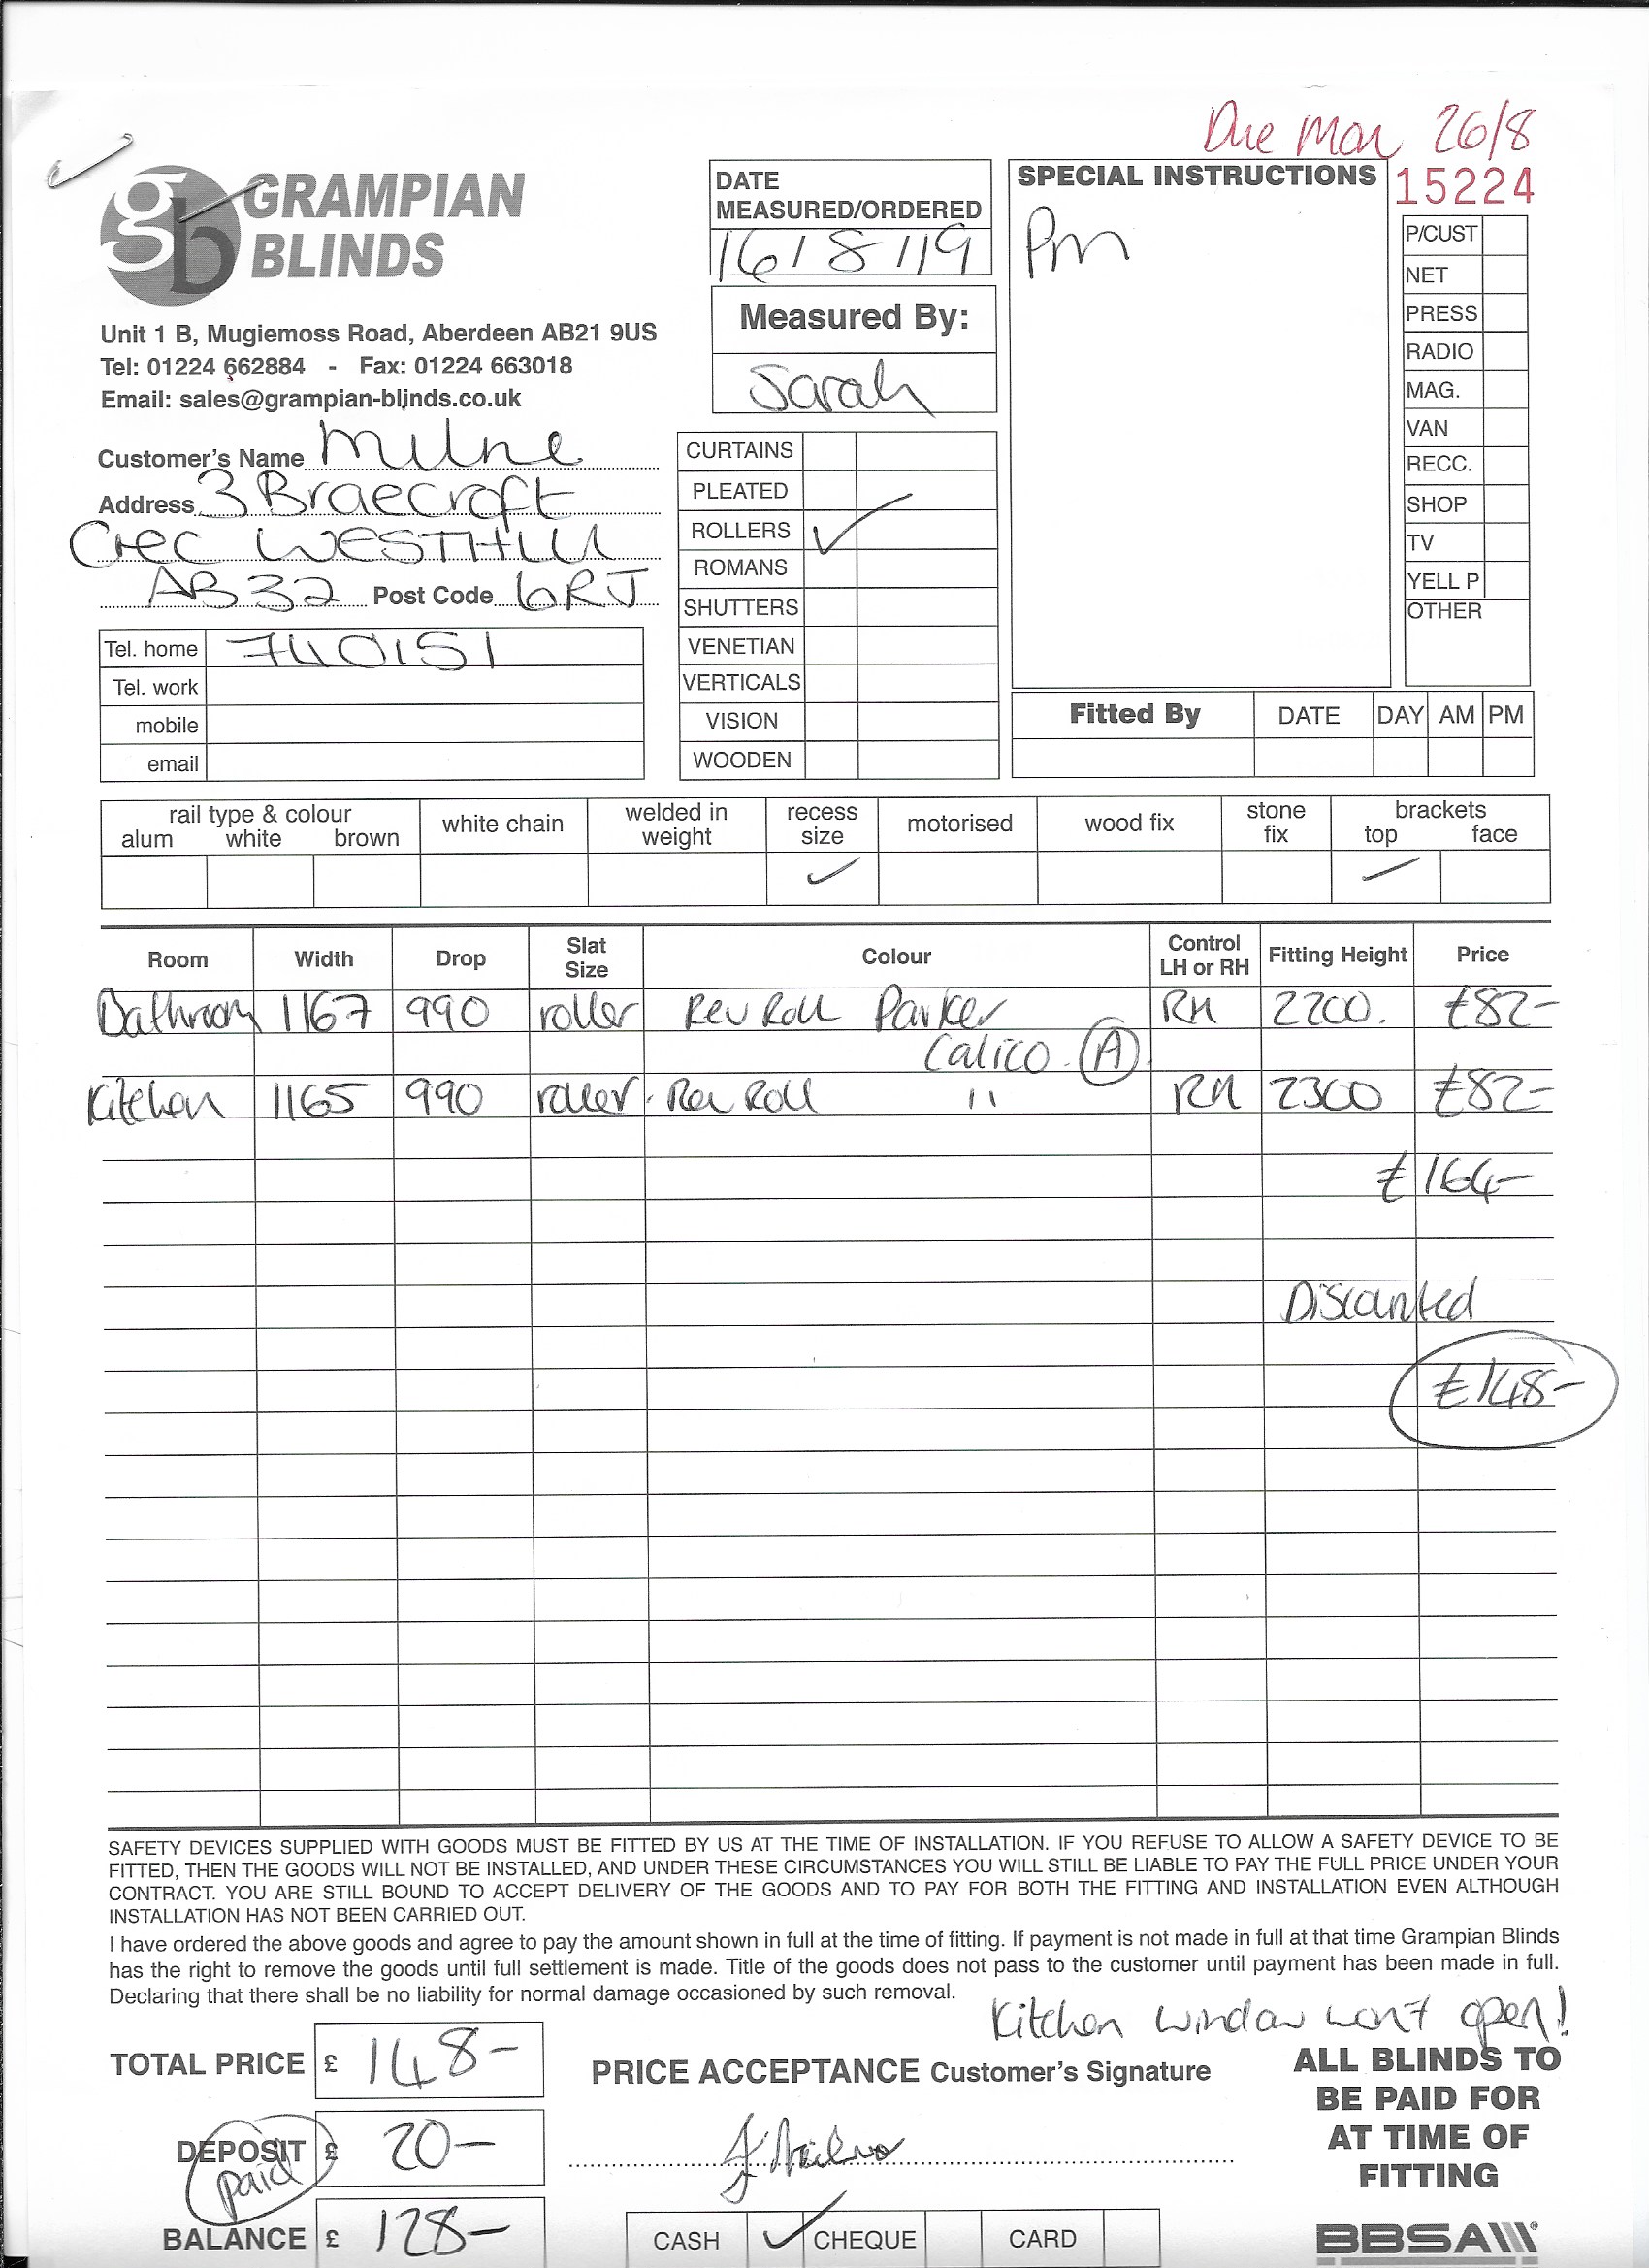 Due Mon 26/8
GRAMPIAN
BLINDS
Unit 1 B, Mugiemoss Road, Aberdeen AB21 9US
Tel: 01224 662884 - Fax: 01224 663018
Email: sales@grampian-blinds.co.uk
Customer's Name Milne
Address 3 Braecroft
Crec WESTHILL
AB32 Post Code 6RJ
Tel. home 740151
Tel. work
mobile
email
DATE
MEASURED/ORDERED
16/8/19
Measured By:
Sarah
CURTAINS
PLEATED
ROLLERS ✓
ROMANS
SHUTTERS
VENETIAN
VERTICALS
VISION
WOODEN
SPECIAL INSTRUCTIONS
Pm
15224
P/CUST
NET
PRESS
RADIO
MAG.
VAN
RECC.
SHOP
TV
YELL P
OTHER
Fitted By DATE DAY AM PM
rail type & colour white chain welded in weight recess size motorised wood fix stone fix brackets
alum white brown top face
✓
Room Width Drop Slat Size Colour Control LH or RH Fitting Height Price
Bathroom 1167 990 roller Rev Roll Parker RH 2200. £82-
Calico. A
Kitchen 1165 990 roller. Rev Roll " RH 2300 £82-
£164-
Discounted
£148-
SAFETY DEVICES SUPPLIED WITH GOODS MUST BE FITTED BY US AT THE TIME OF INSTALLATION. IF YOU REFUSE TO ALLOW A SAFETY DEVICE TO BE
FITTED, THEN THE GOODS WILL NOT BE INSTALLED, AND UNDER THESE CIRCUMSTANCES YOU WILL STILL BE LIABLE TO PAY THE FULL PRICE UNDER YOUR
CONTRACT. YOU ARE STILL BOUND TO ACCEPT DELIVERY OF THE GOODS AND TO PAY FOR BOTH THE FITTING AND INSTALLATION EVEN ALTHOUGH
INSTALLATION HAS NOT BEEN CARRIED OUT.
I have ordered the above goods and agree to pay the amount shown in full at the time of fitting. If payment is not made in full at that time Grampian Blinds
has the right to remove the goods until full settlement is made. Title of the goods does not pass to the customer until payment has been made in full.
Declaring that there shall be no liability for normal damage occasioned by such removal.
Kitchen window won't open!
TOTAL PRICE £ 148-
DEPOSIT £ 20-
paid
BALANCE £ 128-
PRICE ACCEPTANCE Customer's Signature
CASH ✓ CHEQUE CARD
ALL BLINDS TO
BE PAID FOR
AT TIME OF
FITTING
BBSA